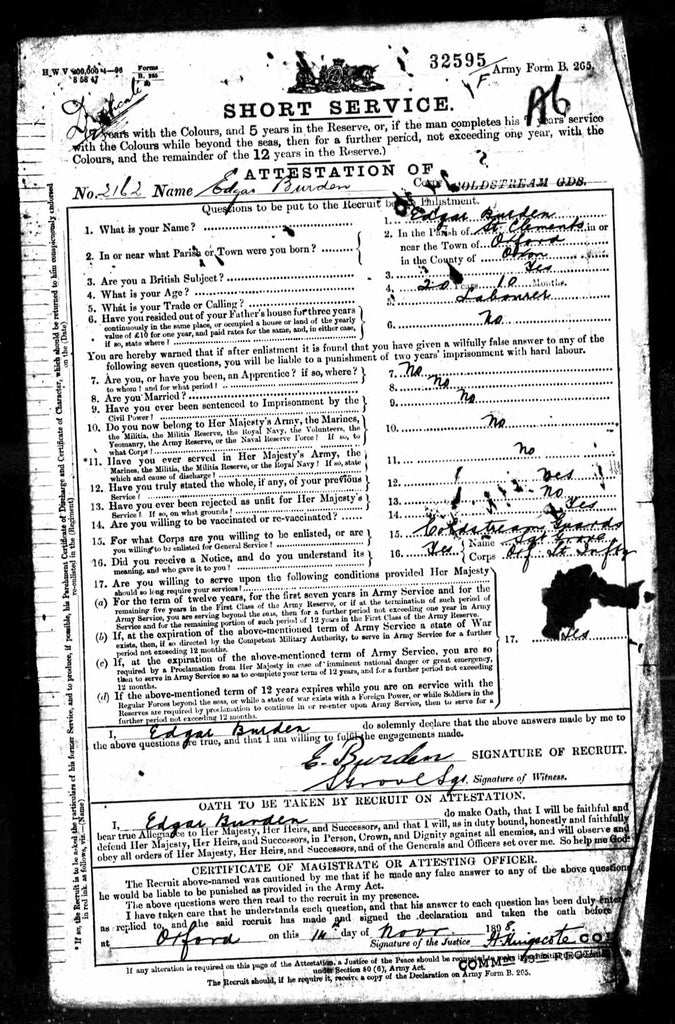 H W V 200,000 4—96 Forms
8 58 47 B. 265
32595
Army Form B. 265.
Duplicate
A6
SHORT SERVICE.
7 years with the Colours, and 5 years in the Reserve, or, if the man completes his 7 years' service
with the Colours while beyond the seas, then for a further period, not exceeding one year, with the
Colours, and the remainder of the 12 years in the Reserve.)
ATTESTATION OF
No. 2162 Name Edgar Burden Corps COLDSTREAM GDS.
Questions to be put to the Recruit before Enlistment.
1. What is your Name? 1. Edgar Burden
2. In or near what Parish or Town were you born? 2. In the Parish of St. Clements in or
near the Town of Oxford
in the County of Oxon
3. Are you a British Subject? 3. Yes
4. What is your Age? 4. 20 Years 10 Months.
5. What is your Trade or Calling? 5. Labourer
6. Have you resided out of your Father's house for three years
continuously in the same place, or occupied a house or land of the yearly
value of £10 for one year, and paid rates for the same, and, in either case,
if so, state where? 6. No
You are hereby warned that if after enlistment it is found that you have given a wilfully false answer to any of the
following seven questions, you will be liable to a punishment of two years' imprisonment with hard labour.
7. Are you, or have you been, an Apprentice? if so, where?
to whom? and for what period? 7. No
8. Are you Married? 8. No
9. Have you ever been sentenced to Imprisonment by the
Civil Power? 9. No
10. Do you now belong to Her Majesty's Army, the Marines,
the Militia, the Militia Reserve, the Royal Navy, the Volunteers, the
Yeomanry, the Army Reserve, or the Naval Reserve Force? If so, to
what Corps? 10. No
*11. Have you ever served in Her Majesty's Army, the
Marines, the Militia, the Militia Reserve, or the Royal Navy? If so, state
which and cause of discharge? 11. No
12. Have you truly stated the whole, if any, of your previous
Service? 12. Yes
13. Have you ever been rejected as unfit for Her Majesty's
Service? If so, on what grounds? 13. No
14. Are you willing to be vaccinated or re-vaccinated? 14. Yes
15. For what Corps are you willing to be enlisted, or are
you willing to be enlisted for General Service? 15. Coldstream Guards
16. Did you receive a Notice, and do you understand its
meaning, and who gave it to you? 16. Yes Name Sgt Grove
Corps Oxf Lt Infty
17. Are you willing to serve upon the following conditions provided Her Majesty
should so long require your services?
(a) For the term of twelve years, for the first seven years in Army Service and for the
remaining five years in the First Class of the Army Reserve, or if at the termination of such period of
Army Service, you are serving beyond the seas, then for a further period not exceeding one year in Army
Service and for the remaining portion of such period of 12 years in the First Class of the Army Reserve.
(b) If, at the expiration of the above-mentioned term of Army Service a state of War
exists, then, if so directed by the Competent Military Authority, to serve in Army Service for a further
period not exceeding 12 months.
(c) If, at the expiration of the above-mentioned term of Army Service, you are so
required by a Proclamation from Her Majesty in case of imminent national danger or great emergency,
then to serve in Army Service so as to complete your term of 12 years, and for a further period not exceeding
12 months.
(d) If the above-mentioned term of 12 years expires while you are on service with the
Regular Forces beyond the seas, or while a state of war exists with a Foreign Power, or while Soldiers in the
Reserves are required by proclamation to continue in or re-enter upon Army Service, then to serve for a
further period not exceeding 12 months.
17. Yes
I, Edgar Burden do solemnly declare that the above answers made by me to
the above questions are true, and that I am willing to fulfil the engagements made.
E. Burden SIGNATURE OF RECRUIT.
S Grove Sgt. Signature of Witness.
OATH TO BE TAKEN BY RECRUIT ON ATTESTATION.
I, Edgar Burden do make Oath, that I will be faithful and
bear true Allegiance to Her Majesty, Her Heirs, and Successors, and that I will, as in duty bound, honestly and faithfully
defend Her Majesty, Her Heirs, and Successors, in Person, Crown, and Dignity against all enemies, and will observe and
obey all orders of Her Majesty, Her Heirs, and Successors, and of the Generals and Officers set over me. So help me God.
CERTIFICATE OF MAGISTRATE OR ATTESTING OFFICER.
The Recruit above-named was cautioned by me that if he made any false answer to any of the above questions
he would be liable to be punished as provided in the Army Act.
The above questions were then read to the recruit in my presence.
I have taken care that he understands each question, and that his answer to each question has been duly entered
as replied to, and the said recruit has made and signed the declaration and taken the oath before
at Oxford on this 14th day of Novr 1898.
Signature of the Justice H Kingscote COL
COMMG 43RD REGTL
If any alteration is required on this page of the Attestation, a Justice of the Peace should be requested to
under Section 80 (6), Army Act.
The Recruit should, if he require it, receive a copy of the Declaration on Army Form B. 265.
* If so, the Recruit is to be asked the particulars of his former Service, and to produce, if possible, his Parchment Certificate of Discharge and Certificate of Character, which should be returned to him conspicuously endorsed
in red ink, as follows, viz.—(Name) re-enlisted in the (Regiment) on the (Date)